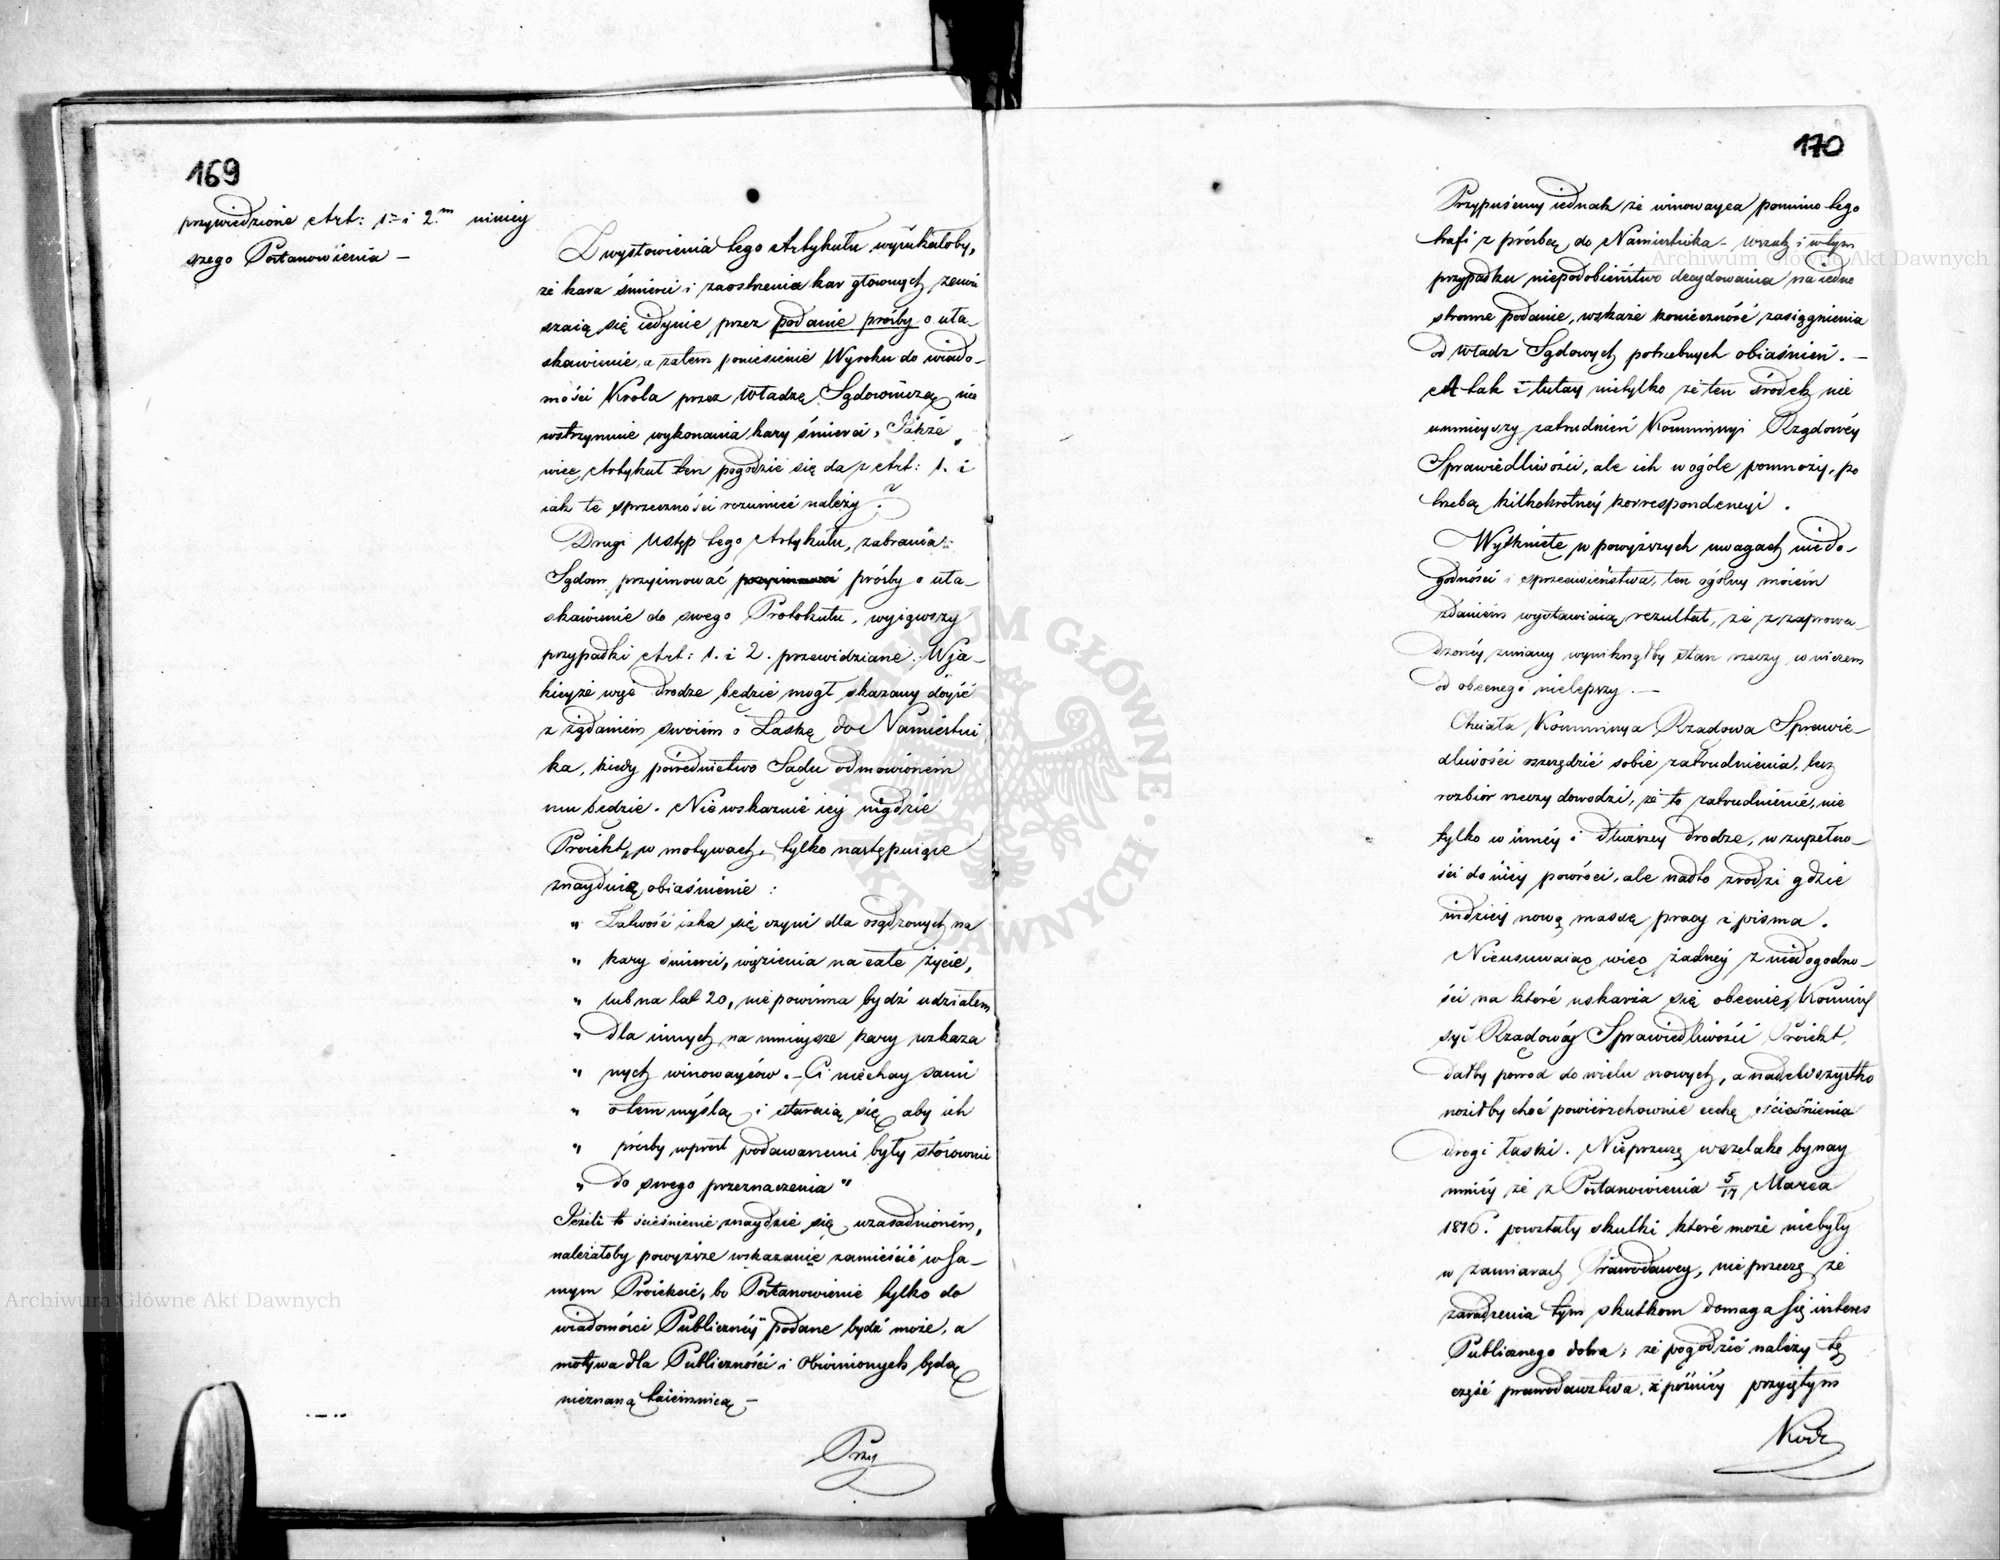 169
przywiedzione Art: 1m i 2.m niniey
szego Postanowienia —
Z wysłowienia tego Artykułu wynikałoby,
że kara śmierci i zaostrzenia kar głównych zawie
szaią się iedynie przez podanie prośby o uła-
skawienie, a zatem poniesienie Wyroku do wiado-
mości Króla przez Władzę Sądowniczą nie
wstrzymuie wykonania kary śmierci, Jakże
więc Artykuł ten pogodzić się da z Art: 1. i
iak te sprzeczności rozumieć należy?
Drugi Ustęp tego Artykułu, zabrania
Sądom przyimować przyimować prośby o uła-
skawienie do swego Protokułu, wyiąwszy
przypadki Art: 1. i 2. przewidziane. W ja-
kieyże więc drodze będzie mógł skazany doyść
z żądaniem swoiem o Łaskę do Namiestni
ka, kiedy pośrednictwo Sądu odmówionem
mu będzie. Nie wskazuie iey nigdzie
Proiekt, w motywach, tylko następuiące
znayduię obiaśnienie :
„ Łatwość iaka się czyni dla osądzonych na
„ kary śmierci, więzienia na całe życie,
„ lub na lat 20, nie powinna bydź udziałem
„ dla innych na mnieysze kary wskaza
„ nych winowayców. – Ci niechay sami
„ o tem myślą i staraią się aby ich
„ prośby wprost podawanemi były stósownie
„ do swego przeznaczenia "
Jeżeli to ścieśnienie znaydzie się uzasadnionem,
należałoby powyższe wskazanie zamieścić w sa-
mym Proiekcie, bo Postanowienie tylko do
wiadomości Publiczney podane bydź może, a
motywa dla Publiczności i Obwinionych będą
nieznaną taiemnicą –
Przy
170
Przypuśćmy iednak że winowayca pomimo tego
trafi z prośbą do Namiestnika – wszak i w tym
przypadku niepodobieństwo decydowania na iedno
stronne podanie, wskaże konieczność zasiągnienia
od Władz Sądowych potrzebnych obiaśnień. —
A tak i tutay nietylko że ten środek nie
umnieyszy zatrudnień Kommissyi Rządowéy
Sprawiedliwości, ale ich w ogóle pomnoży, po
trzebą kilkokrotnéy korrespondencyi.
Wytknięte w powyższych uwagach niedo-
godności i sprzeciwieństwa, ten ogólny moiem
zdaniem wystawiaią rezultat, że z zaprowa-
dzonéy zmiany wyniknąłby stan rzeczy w niczem
od obecnego nielepszy. —
Chciała Kommissya Rządowa Sprawie-
dliwości oszczędzić sobie zatrudnienia, lecz
rozbiór rzeczy dowodzi, że to zatrudnienie, nie
tylko w innéy i dłuższey drodze, w zupełno-
ści do niey powróci, ale nadto zrodzi gdzie
indziéy nową massę pracy i pisma.
Nieusuwaiąc więc żadnéy z niedogodno-
ści na które uskarża się obecnie Kommis
sya Rządowa Sprawiedliwości Proiekt,
dałby powód do wielu nowych, a nadewszystko
nosiłby choć powierzchownie cechę ścieśnienia
drogi łaski. Nie przeczę wszelako bynay
mniéy że z Postanowienia 5/17 Marca
1816. powstały skutki które może niebyły
w zamiarach Prawodawcy, nie przeczę że
zaradzenia tym skutkom domaga się interes
Publicznego dobra; że pogodzić należy tę
część prawodawstwa, z późniéy przyiętym
Kode
Archiwum Główne Akt Dawnych
Archiwum Główne Akt Dawnych
ARCHIWUM GŁÓWNE AKT DAWNYCH